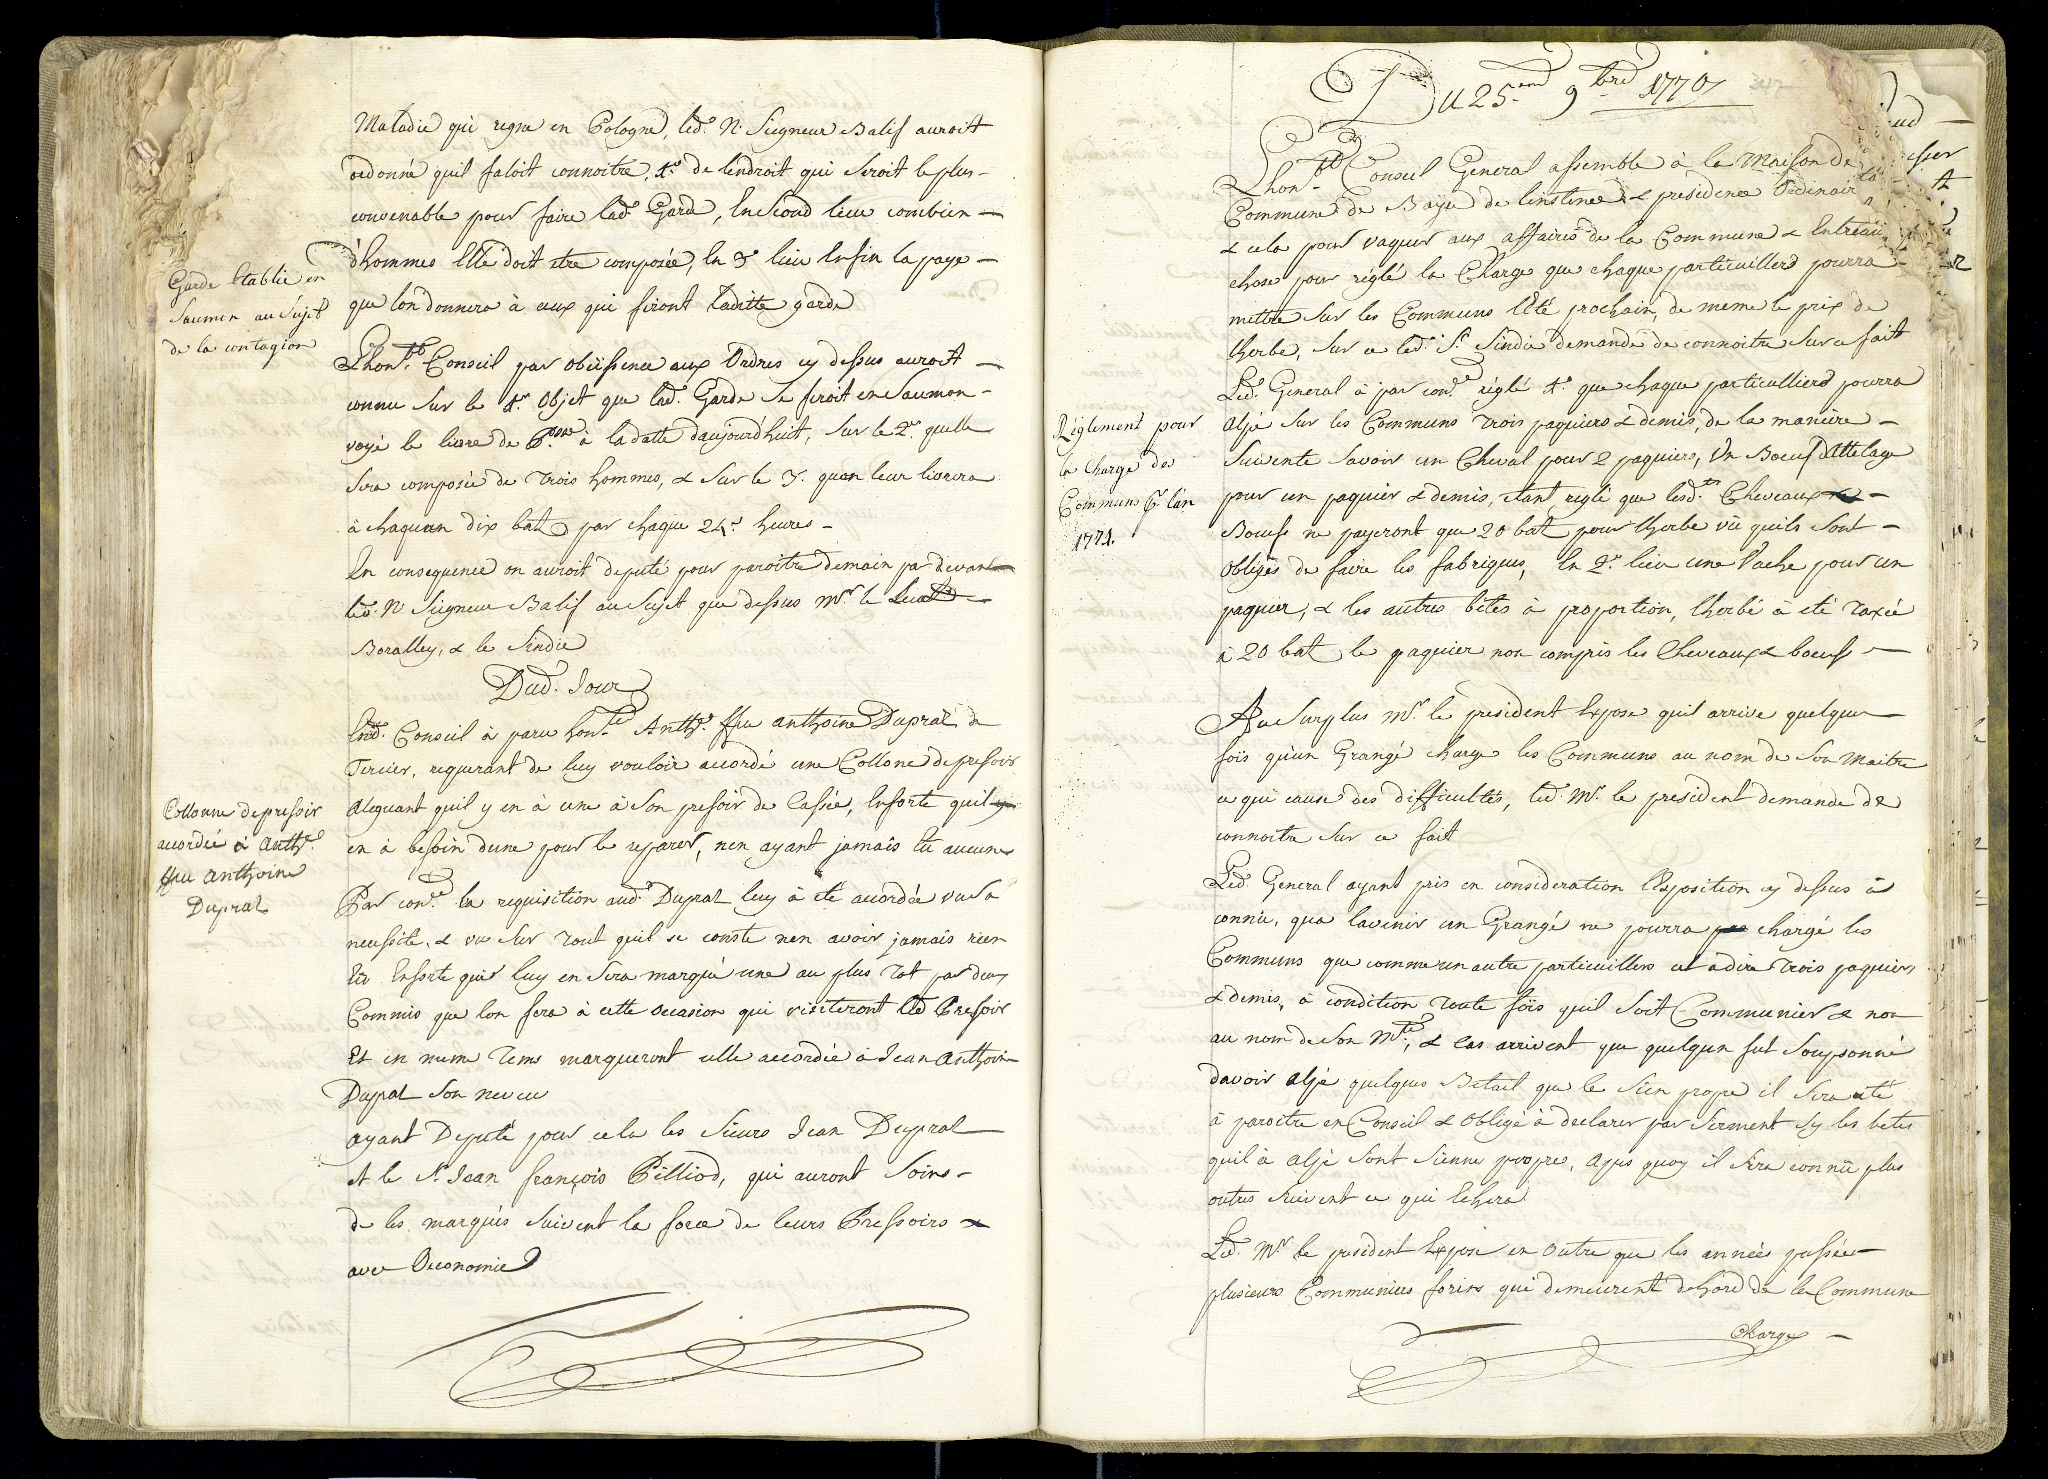 Maladie qui regne en Pologne, led. N. Seigneur Balif auroit
ordonné quil faloit connoitre, 1.º de lendroit qui seroit le plus
convenable pour faire lad. Garde, En second lieu combien
d'hommes Elle doit etre composée, En 3.e lieu Enfin la paye
que lon donnera à ceux qui feront laditte garde
Garde Etablie en
Saumon au Sujet
de la contagion
Lhon.ble Conseil par obeissence aux Ordres cy dessus auroit
connu sur le 1.er Objet que lad. Garde se feroit en Saumon
voyé le livre de à la datte daujourdhuit, sur le 2.e quelle
sera composée de trois hommes, & sur le 3.e quon leur livrera
à chaquun dix bat par chaque 24. heures
En consequence on auroit deputé pour paroitre demain par devant
led. N. Seigneur Balif au sujet que dessus Mr. le
Boralley, & le Sindic
Dud. Jour
End. Conseil à paru hon.te Anth.e ffeu anthoine Duprat de
Tercier, requerant de luy vouloir accordé une Collone de pressoir
aleguant quil y en à une à son pressoir de Cassée, Ensorte quil
en à besoin dune pour le reparer, nen ayant jamais eu aucune
Collonne de pressoir
accordée à Anth.e
ffeu Anthoine
Duprat
Par con.ce la requisition aud. Duprat luy à été accordée vu sa
necessité, & vu sur tout quil se conste nen avoir jamais rien
Eu Ensorte quil luy en sera marqué une au plus tot par deux
Commis que lon fera à cette occasion qui visiteront led Pressoir
Et en meme tems marqueront celle accordée à Jean Anthoine
Duprat son neveu
ayant Deputé pour cela les Sieurs Jean Duprat
et le Sr. Jean françois Pilliod, qui auront soins
de les marqués suivent la force de leurs Pressoirs
avec Oeconomie
Du 25.eme 9bre 1770
Lhon.ble Conseil General assemblé à la Maison de
Commune de Baye de linstence & presidence Ordinaire
& cela pour vaquer aux affaires de la Commune & Entreautre
chose pour réglé la Charge que chaque particuillers pourra
mettre sur les Communs lEté prochain, de meme le prix de
lherbe, sur ce led. Sr. Sindic demande de connoitre sur ce fait
Led. General à par con.ce réglé 1.º que chaque particulliers pourra
Réglement pour
la Charge des
Communs Pr. lan
1771.
aljé sur les Communs trois paquiers & demis, de la manière
suivente savoir un Cheval pour 2 paquiers, Un Boeuf D'attelage
pour un paquier & demis, etant reglé que lesd.ts Cheveaux
Boeufs ne payeront que 20 bat pour lherbe vû quils sont
obligés de faire les fabriques, En 2.e lieu une Vache pour un
paquier, & les autres bêtes à proportion, lherbe à eté taxée
à 20 bat le paquier non compris les Cheveaux & boeufs
Au surplus Mr. le president Expose quil arrive quelque
fois quun Grangé charge les Communs au nom de Son Maitre
ce qui cause des difficultés, led. Mr. le president demande de
connoitre sur ce fait
Led. General ayant pris en consideration lExposition cy dessus à
connu, qua lavenir un Grangé ne pourra chargé les
Communs que comme un autre particuillers cet adire trois paquiers
& demis, à condition toute fois quil soit Communier & non
au nom de son M.tre, & cas arrivent que quelquun fut soupsonné
davoir aljé quelques Betail que le sien propre il sera cité
à paroitre en Conseil & obligé à declarer par serment sy les betes
quil à aljé sont sienne propre, apres quoy il sera connû plus
outres suivent ce qui Echera
Led. Mr le president Expose en outre que les années passée
plusieurs Communiers forins qui demeurent dehord de la Commune
Charge